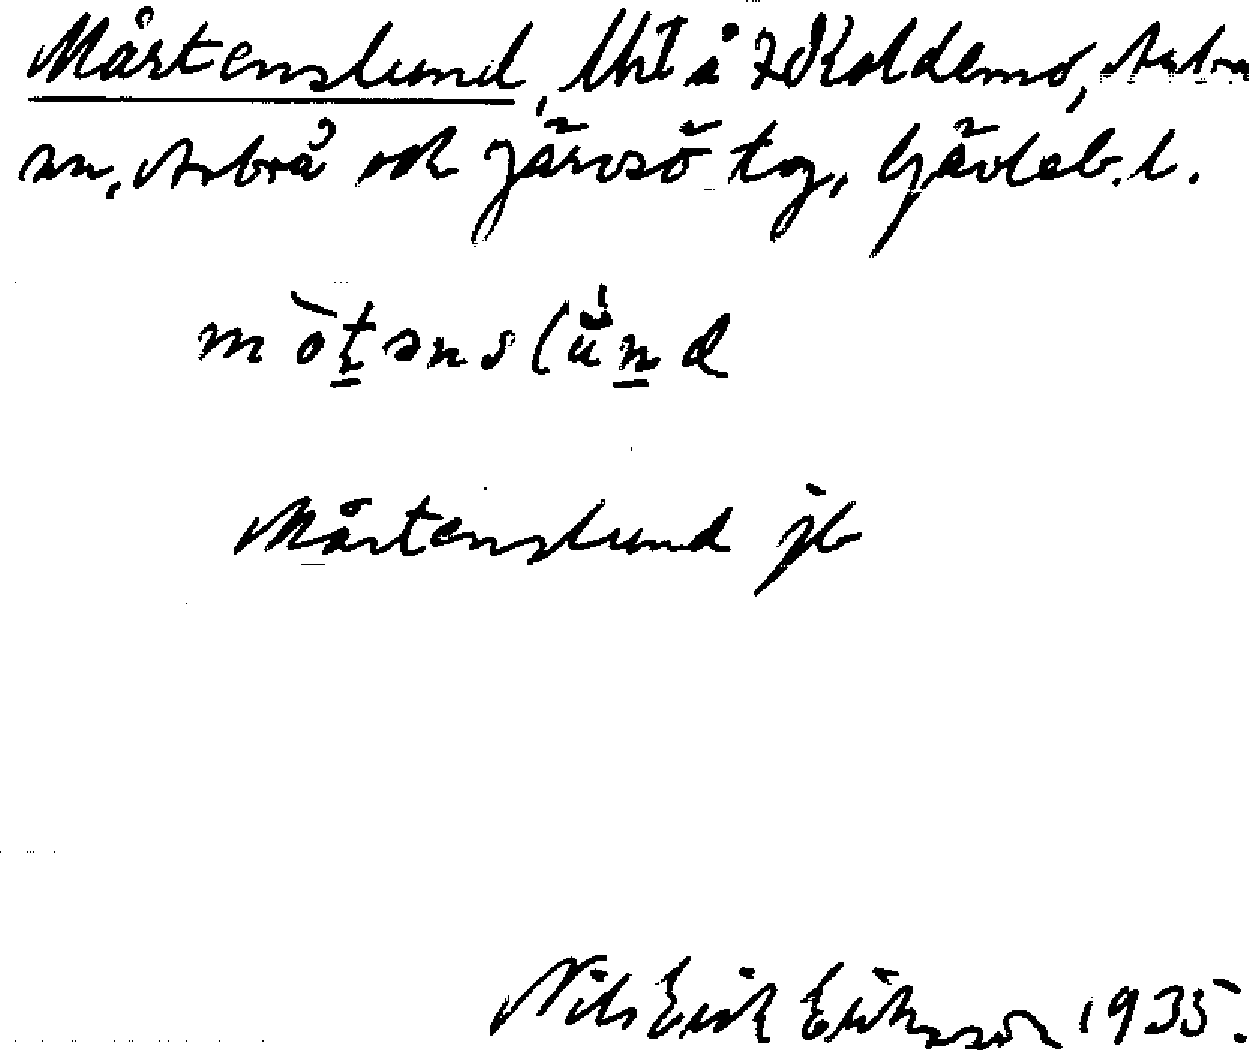 Mårtenslund, lht å 2 Koldemo, Arbrå
sn, Arbrå och Järvsö tg, Gävleb. l.
Mårtenslund jb
Nils Erik Eriksson 1935.